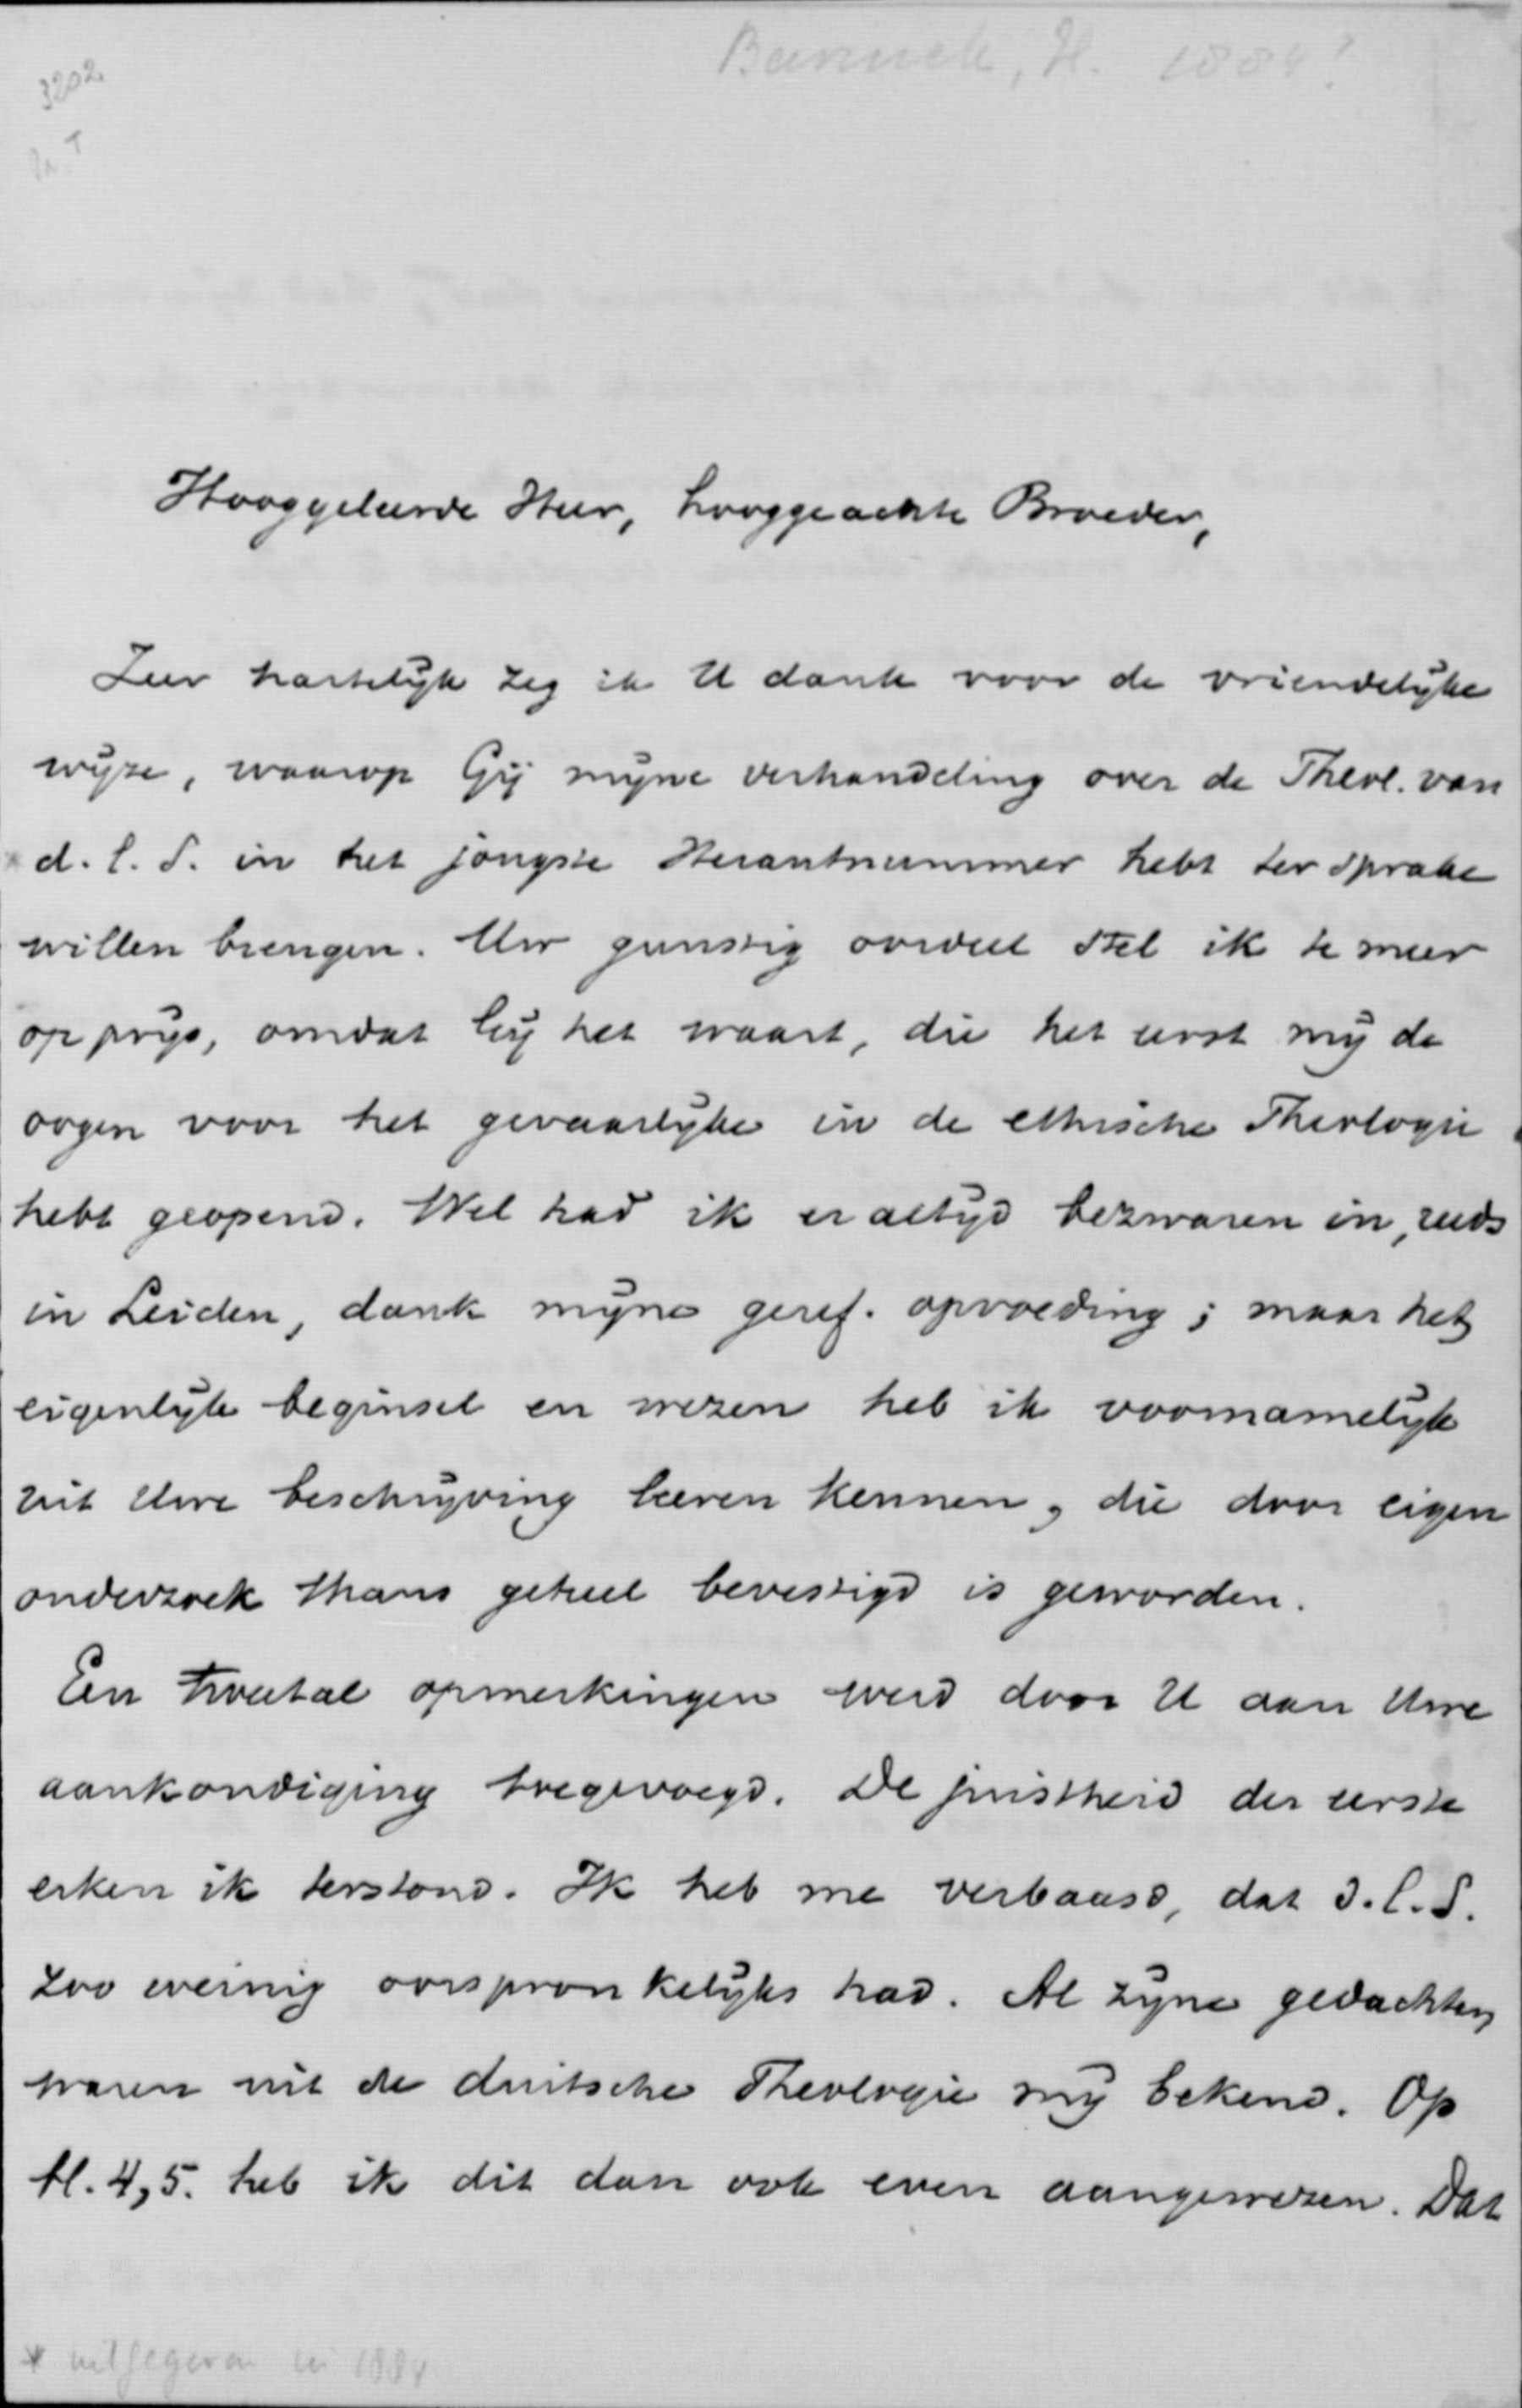 Bavinck, H. 1884?
3202
Hooggeleerde Heer, hooggeachte Broeder,
Zeer hartelijk zeg ik U dank voor de vriendelijke
wijze, waarop Gij mijne verhandeling over de Theol. van
* d. l. S. in het jongste Herautnummer hebt ter sprake
willen brengen. Uw gunstig oordeel stel ik te meer
op prijs, omdat Gij het waart, die het eerst mij de
oogen voor het gevaarlijke in de ethische Theologie
hebt geopend. Wel had ik er altijd bezwaren in, reeds
in Leiden, dank mijne geref. opvoeding; maar het
eigenlijk beginsel en wezen heb ik voornamelijk
uit Uwe beschrijving leeren kennen, die door eigen
onderzoek thans geheel bevestigd is geworden.
Een tweetal opmerkingen werd door U aan Uwe
aankondiging toegevoegd. De juistheid der eerste
erken ik terstond. Ik heb me verbaasd, dat d. l. S.
zoo weinig oorspronkelijks had. Al zijne gedachten
waren uit de duitsche Theologie mij bekend. Op
bl. 4, 5. heb ik dit dan ook even aangewezen. Dat
* uitgegeven in 1884